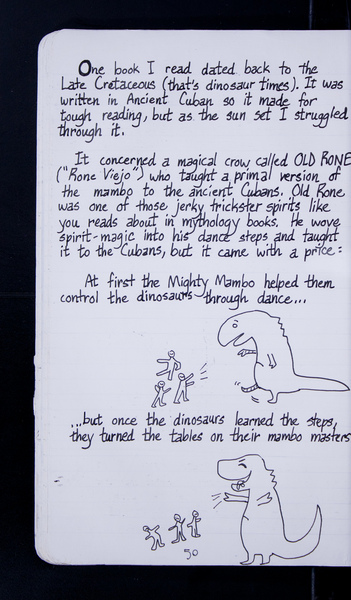 One book I read dated back to the
Late Cretaceous (that's dinosaur times). It was
written in Ancient Cuban so it made for
tough reading, but as the sun set I struggled
through it.
It concerned a magical crow called OLD RONE
("Rone Viejo") who taught a primal version of
the mambo to the ancient Cubans. Old Rone
was one of those jerky trickster spirits like
you reads about in mythology books. He wove
spirit-magic into his dance steps and taught
it to the Cubans, but it came with a price:
At first the Mighty Mambo helped them
control the dinosaurs through dance...
...but once the dinosaurs learned the steps,
they turned the tables on their mambo masters
50